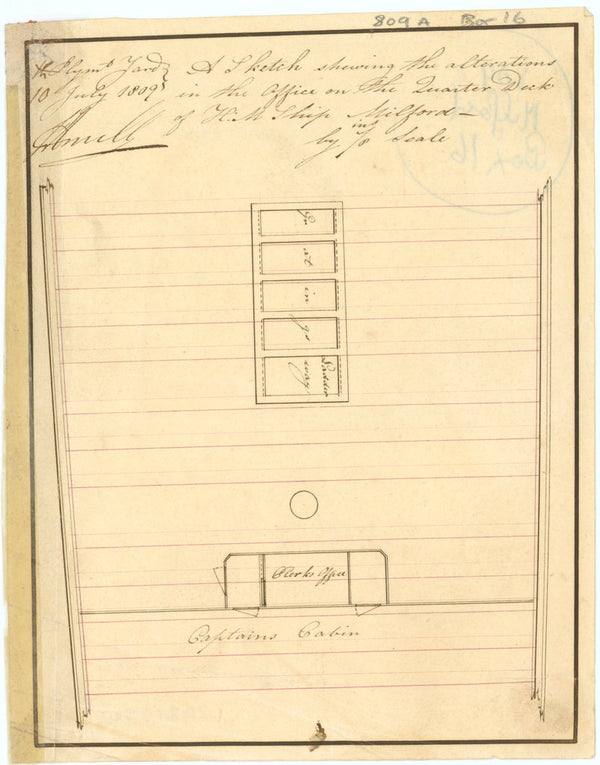 809 A Box 16
Plymo Yard
10 July 1809
A Sketch shewing the alterations
in the Office on the Quarter Deck
of H.M Ship Milford
by ins Scale
Milford
Box 16
Gr
at
in
gs
Ladder
way
Clerks Office
Captains Cabin